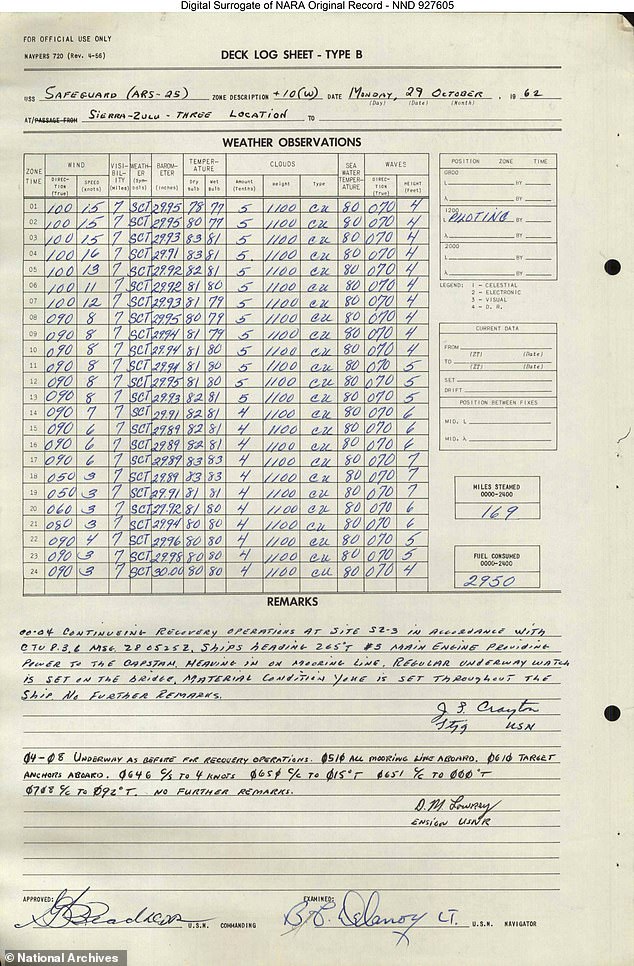 Digital Surrogate of NARA Original Record - NND 927605
FOR OFFICIAL USE ONLY
NAVPERS 720 (Rev. 4-56)
DECK LOG SHEET - TYPE B
USS SAFEGUARD (ARS-25) ZONE DESCRIPTION +10(W) DATE MONDAY, 29 OCTOBER, 19 62
(Day) (Date) (Month)
AT/PASSAGE FROM SIERRA-ZULU-THREE LOCATION TO
WEATHER OBSERVATIONS
ZONE TIME WIND VISIBILITY (Miles) WEATHER (Symbols) BAROMETER (Inches) TEMPERATURE CLOUDS SEA WATER TEMPERATURE WAVES
DIRECTION (True) SPEED (knots) Dry bulb Wet bulb Amount (Tenths) Height Type DIRECTION (True) HEIGHT (Feet)
01 100 15 7 SCT 29.95 78 77 5 1100 CU 80 070 4
02 100 15 7 SCT 29.95 80 77 5 1100 CU 80 070 4
03 100 15 7 SCT 29.93 83 81 5 1100 CU 80 070 4
04 100 16 7 SCT 29.91 83 81 5 1100 CU 80 070 4
05 100 13 7 SCT 29.92 82 81 5 1100 CU 80 070 4
06 100 11 7 SCT 29.92 81 80 5 1100 CU 80 070 4
07 100 12 7 SCT 29.93 81 79 5 1100 CU 80 070 4
08 090 8 7 SCT 29.95 80 79 5 1100 CU 80 070 4
09 090 8 7 SCT 29.94 81 79 5 1100 CU 80 070 4
10 090 8 7 SCT 29.94 81 80 5 1100 CU 80 070 4
11 090 8 7 SCT 29.94 81 80 5 1100 CU 80 070 5
12 090 8 7 SCT 29.95 81 80 5 1100 CU 80 070 5
13 090 8 7 SCT 29.93 82 81 5 1100 CU 80 070 5
14 090 7 7 SCT 29.91 82 81 4 1100 CU 80 070 6
15 090 6 7 SCT 29.89 82 81 4 1100 CU 80 070 6
16 090 6 7 SCT 29.89 82 81 4 1100 CU 80 070 6
17 090 6 7 SCT 29.89 83 83 4 1100 CU 80 070 7
18 050 3 7 SCT 29.89 83 83 4 1100 CU 80 070 7
19 050 3 7 SCT 29.91 81 81 4 1100 CU 80 070 7
20 060 3 7 SCT 29.92 81 80 4 1100 CU 80 070 6
21 080 3 7 SCT 29.94 80 80 4 1100 CU 80 070 6
22 090 4 7 SCT 29.96 80 80 4 1100 CU 80 070 5
23 090 3 7 SCT 29.98 80 80 4 1100 CU 80 070 5
24 090 3 7 SCT 30.00 80 80 4 1100 CU 80 070 4
POSITION ZONE TIME
0800
L BY
λ BY
1200
L PILOTING BY
λ BY
2000
L BY
λ BY
LEGEND: 1 - CELESTIAL
2 - ELECTRONIC
3 - VISUAL
4 - D. R.
CURRENT DATA
FROM
(ZT) (Date)
TO
(ZT) (Date)
SET
DRIFT
POSITION BETWEEN FIXES
MID. L
MID. λ
MILES STEAMED
0000-2400
169
FUEL CONSUMED
0000-2400
2950
REMARKS
00-04 CONTINUING RECOVERY OPERATIONS AT SITE SZ-3 IN ACCORDANCE WITH
CTU 8.3.6 MSG. 280525Z, SHIPS HEADING 265°T #3 MAIN ENGINE PROVIDING
POWER TO THE CAPSTAN, HEAVING IN ON MOORING LINE, REGULAR UNDERWAY WATCH
IS SET ON THE BRIDGE, MATERIAL CONDITION YOKE IS SET THROUGHOUT THE
SHIP NO FURTHER REMARKS.
J. F. Crayton
USN
04-08 UNDERWAY AS BEFORE FOR RECOVERY OPERATIONS. 0510 ALL MOORING LINE ABOARD. 0610 TARGET
ANCHORS ABOARD. 0646 C/S TO 4 KNOTS 0650 C/C TO 015°T 0651 C/C TO 000°T
0708 C/C TO 092°T. NO FURTHER REMARKS.
D. M. Lowrey
ENSIGN USNR
APPROVED: EXAMINED:
U.S.N. COMMANDING B. L. Delanoy LT. U.S.N. NAVIGATOR
© National Archives